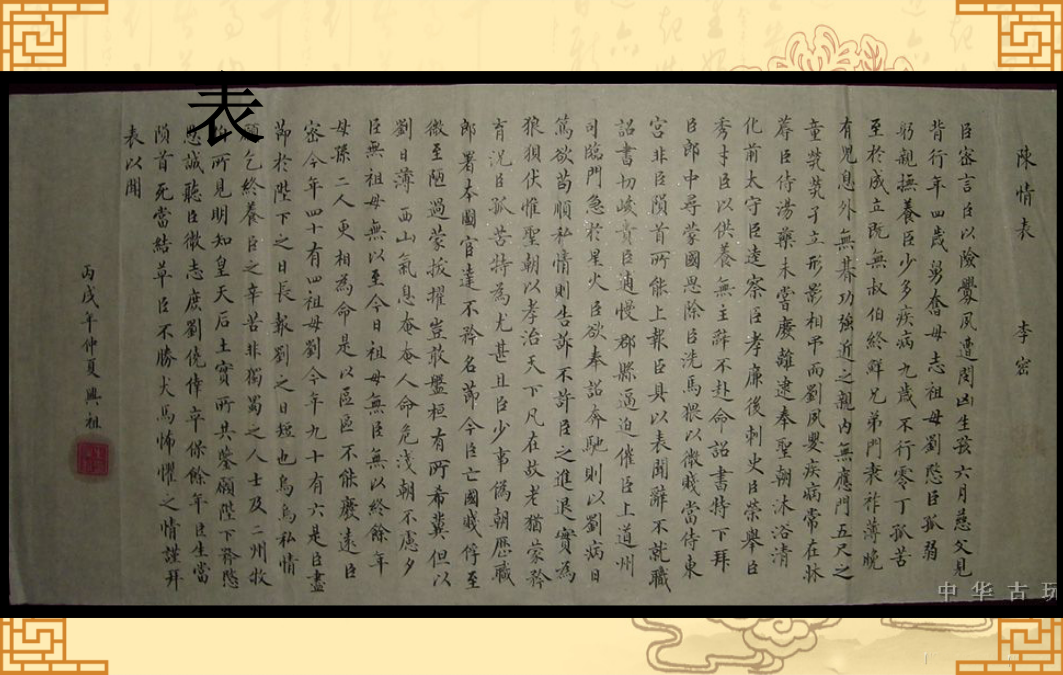 表
陳情表 李密
臣密言臣以險釁夙遭閔凶生孩六月慈父見
背行年四歲舅奪母志祖母劉愍臣孤弱
躬親撫養臣少多疾病九歲不行零丁孤苦
至於成立既無叔伯終鮮兄弟門衰祚薄晚
有兒息外無朞功強近之親內無應門五尺之
童煢煢孑立形影相弔而劉夙嬰疾病常在牀
蓐臣侍湯藥未嘗廢離逮奉聖朝沐浴清
化前太守臣逵察臣孝廉後刺史臣榮舉臣
秀才臣以供養無主辭不赴命詔書特下拜
臣郎中尋蒙國恩除臣洗馬猥以微賤當侍東
宮非臣隕首所能上報臣具以表聞辭不就職
詔書切峻責臣逋慢郡縣逼迫催臣上道州
司臨門急於星火臣欲奉詔奔馳則以劉病日
篤欲苟順私情則告訴不許臣之進退實為
狼狽伏惟聖朝以孝治天下凡在故老猶蒙矜
育況臣孤苦特為尤甚且臣少事偽朝歷職
郎署本圖宦達不矜名節今臣亡國賤俘至
微至陋過蒙拔擢豈敢盤桓有所希冀但以
劉日薄西山氣息奄奄人命危淺朝不慮夕
臣無祖母無以至今日祖母無臣無以終餘年
母孫二人更相為命是以區區不能廢遠臣
密今年四十有四祖母劉今年九十有六是臣盡
節於陛下之日長報劉之日短也烏鳥私情
乞終養臣之辛苦非獨蜀之人士及二州牧
所見明知皇天后土實所共鑒願陛下矜愍
愚誠聽臣微志庶劉僥倖卒保餘年臣生當
隕首死當結草臣不勝犬馬怖懼之情謹拜
表以聞
丙戌年仲夏興祖
中华古玩